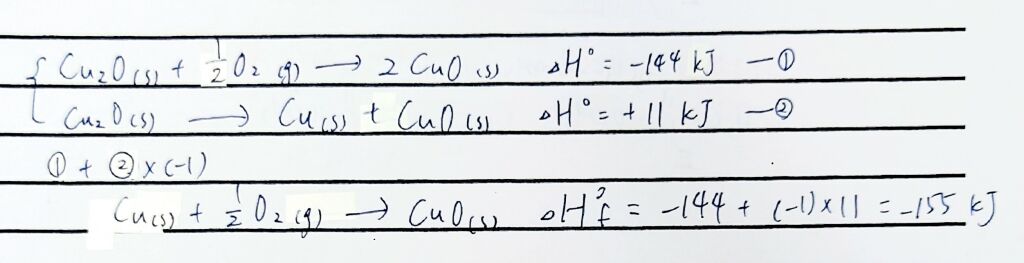 Cu₂O(s) + 1/2 O₂(g) → 2 CuO(s) ΔH° = -144 kJ —①
Cu₂O(s) → Cu(s) + CuO(s) ΔH° = +11 kJ —②
① + ② x (-1)
Cu(s) + 1/2 O₂(g) → CuO(s) ΔH°f = -144 + (-1)x11 = -155 kJ